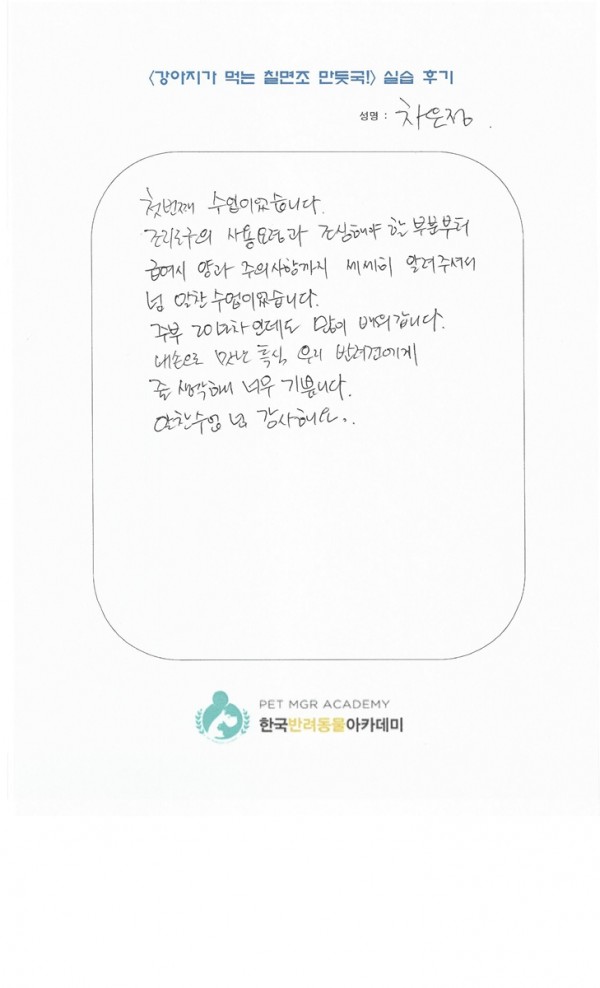 <강아지가 먹는 칠면조 만둣국!> 실습 후기
성명 : 차은정.
첫번째 수업이였습니다.
조리도구의 사용요령과 조심해야 할 부분부터
급여시 양과 주의사항까지 세세히 알려주셔서
넘 알찬 수업이였습니다.
주부 20년차인데도 많이 배워갑니다.
내손으로 만난 특식 우리 반려견에게
줄 생각해 너무 기쁩니다.
알찬수업 넘 감사해요..
PET MGR ACADEMY
한국반려동물아카데미